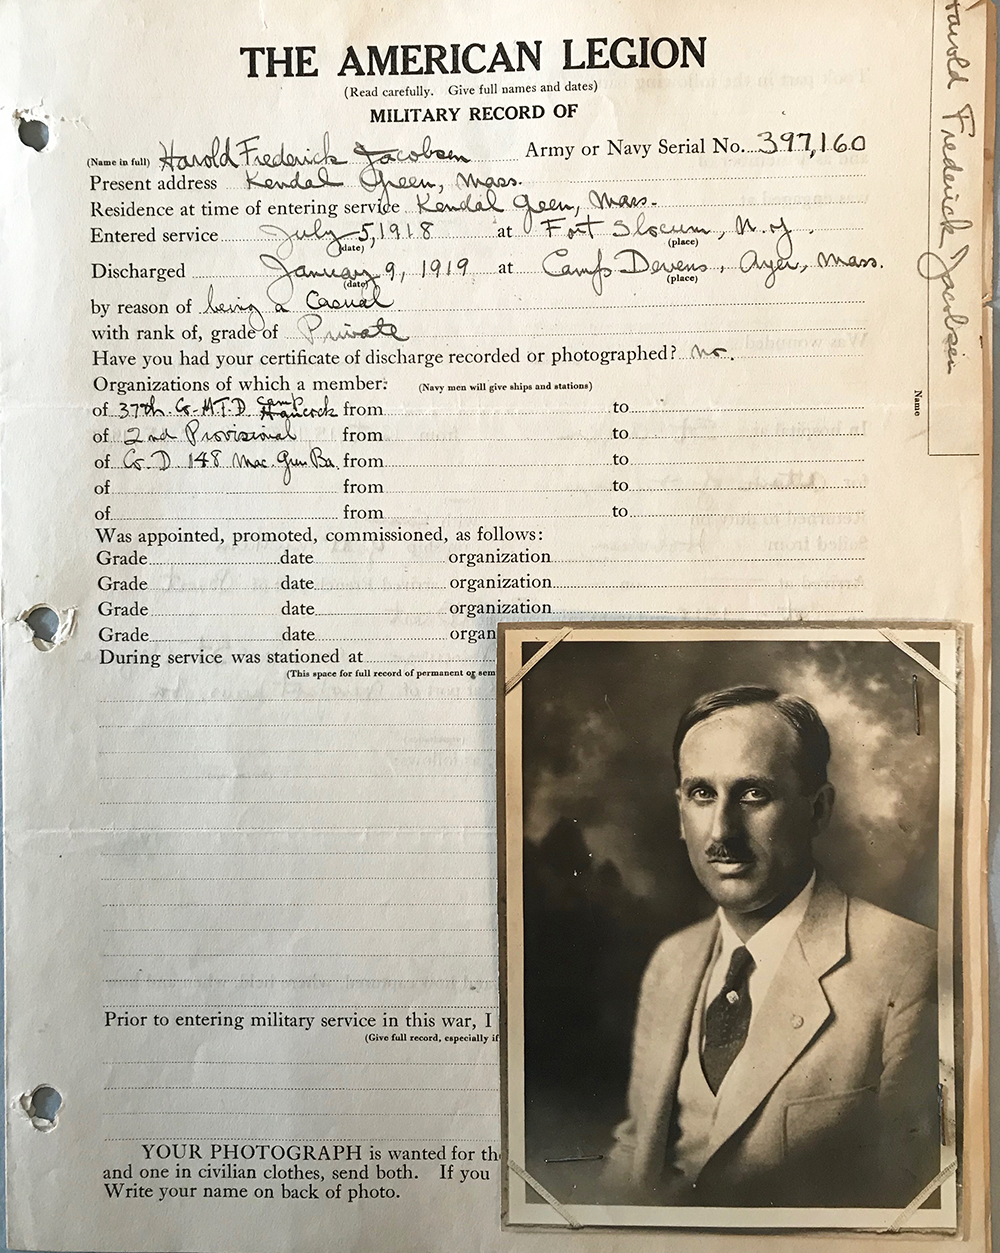 THE AMERICAN LEGION
(Read carefully. Give full names and dates)
MILITARY RECORD OF
(Name in full) Harold Frederick Jacobsen Army or Navy Serial No. 397,160
Present address Kendal Green, Mass.
Residence at time of entering service Kendal Geen, Mass.
Entered service July 5, 1918 at Fort Slocum, N.Y.
(date) (place)
Discharged January 9, 1919 at Camp Devens, Ayer, Mass.
(date) (place)
by reason of being a Casual
with rank of, grade of Private
Have you had your certificate of discharge recorded or photographed? no.
Organizations of which a member: (Navy men will give ships and stations)
of 37th. Co. M.T.D. Camp Hancock from to
of 2nd Provisional from to
of Co. D 148 Mac. Gun Ba. from to
of from to
of from to
Was appointed, promoted, commissioned, as follows:
Grade date organization
Grade date organization
Grade date organization
Grade date organ
During service was stationed at
(This space for full record of permanent or sem
Prior to entering military service in this war, I
(Give full record, especially if
YOUR PHOTOGRAPH is wanted for th
and one in civilian clothes, send both. If you
Write your name on back of photo.
Harold Frederick Jacobsen
Name